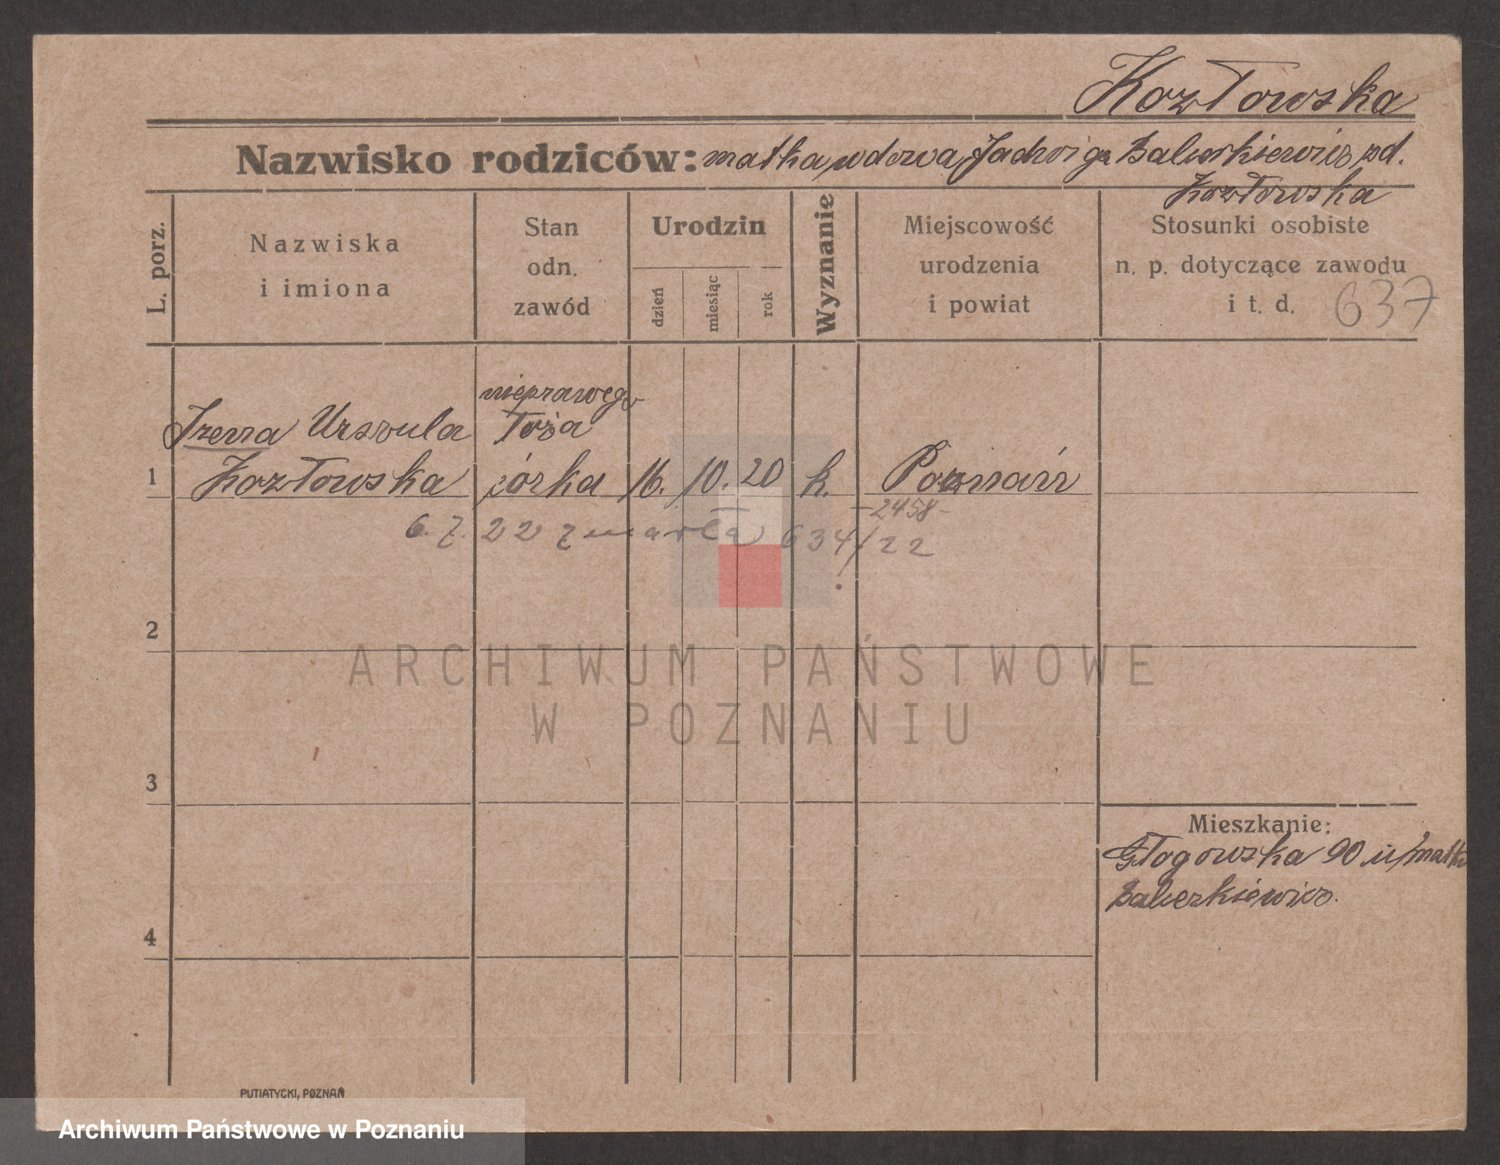 Kozłowska
Nazwisko rodziców: matka, wdowa, Jadwiga
Kozłowska
L. porz.
Nazwiska i imiona
Stan odn. zawód
Urodzin
dzień
miesiąc
rok
Wyznanie
Miejscowość urodzenia i powiat
Stosunki osobiste n. p. dotyczące zawodu i t. d.
637
nieprawego
Irena Urszula łoża
1 Kozłowska córka 16. 10. 20 k. Poznań
-2458-
6. 7. 22 zmarła 634/22
2
3
4
Mieszkanie:
Głogowska 90 u/matki
PUTIATYCKI, POZNAŃ
ARCHIWUM PAŃSTWOWE
W POZNANIU
Archiwum Państwowe w Poznaniu